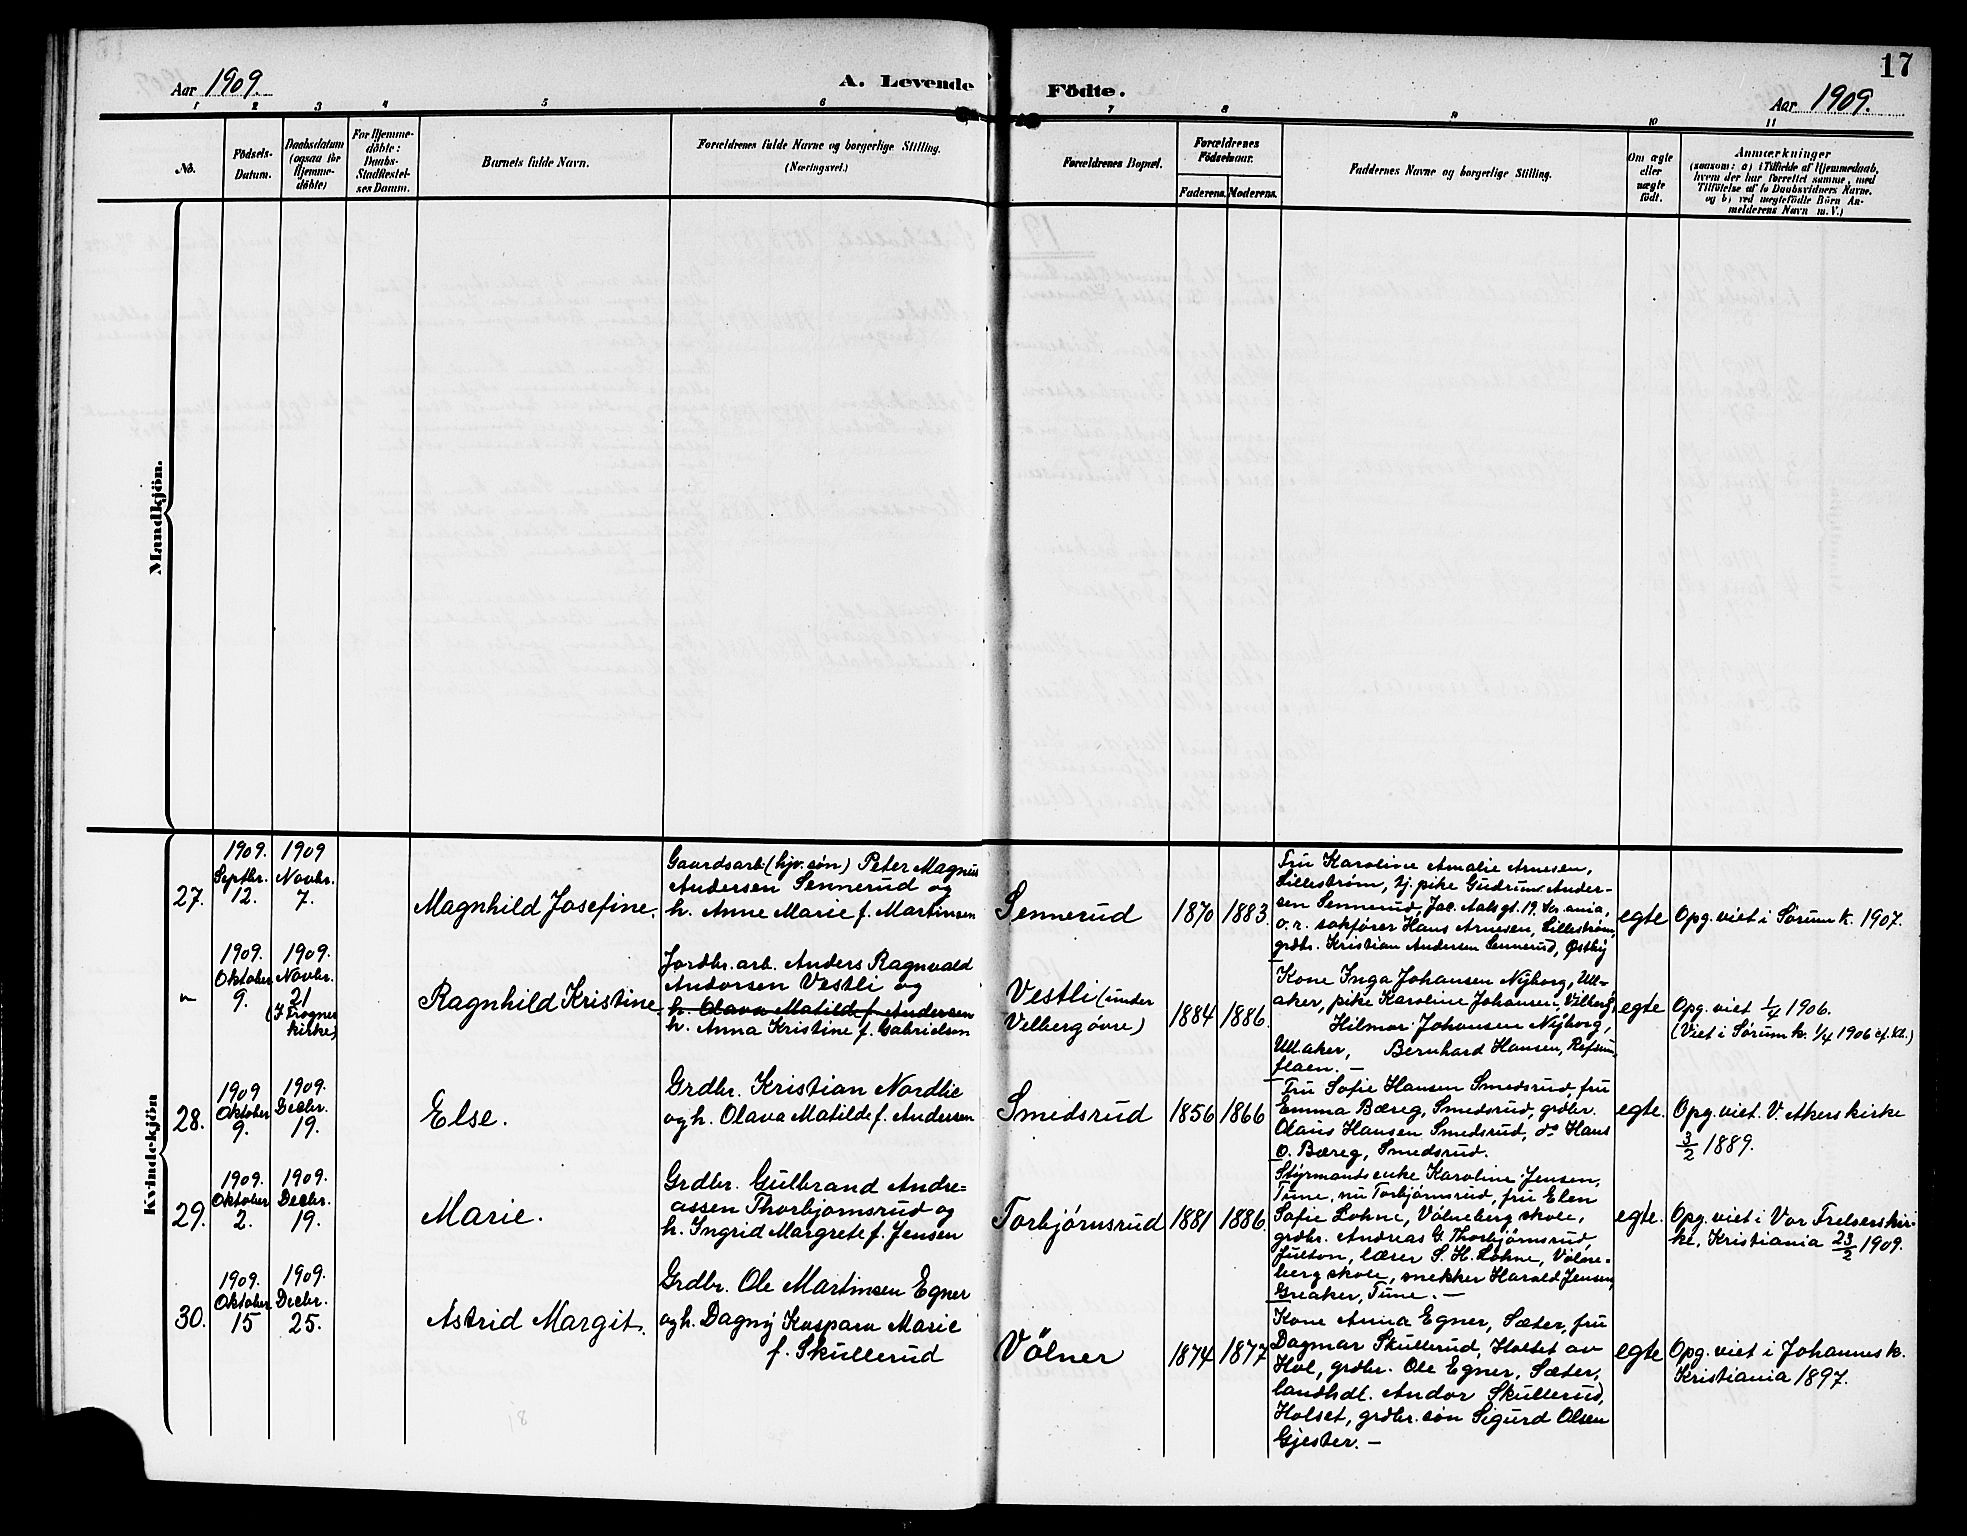 17
Aar 1909.
A. Levende Födte.
Aar 1909.
1 2 3 4 5 6 7 8 9 10 11
No.
Födsels-
Datum.
Daabsdatum
(ogsaa for
Hjemme-
döbte)
For Hjemme-
döbte:
Daabs-
Stadfæstel-
ses Datum.
Barnets fulde Navn.
Forældrenes fulde Navne og borgerlige Stilling.
(Næringsvei.)
Forældrenes Bopæl.
Forældrenes
Födselsaar.
Faderens. Moderens.
Faddernes Navne og borgerlige Stilling.
Om ægte
eller
uægte
födt.
Anmærkninger
(saasom: a) i Tilfælde af Hjemmedaab,
hvem der har forrettet samme, med
Tilföielse af to Daabsvidners Navne,
og b) ved uægtefödte Börn An-
melderens Navn m. V.)
Mandkjön.
Kvindekjön
27.
1909.
Septbr.
12.
1909
Novbr.
7.
Magnhild Josefine.
Gaardsarb. (hjv. søn) Peter Magnus
Andersen Sennerud og
h. Anne Marie f. Martinsen
Sennerud
1870 1883.
Fru Karoline Amalie Arnesen,
Lillestrøm, tj. pike Gudrun Ander-
sen Sennerud, Jac. Aalsgt. 19,
o. r. sakfører Hans Arnesen, Lillestrøm,
grdbr. Kristian Andersen Sennerud, Østby
egte
Opg. viet i Sørum k. 1907.
"
1909.
Oktober
9.
1909.
Novbr.
21
(I Frogner
kirke)
Ragnhild Kristine
Jordbr. arb. Anders Ragnvald
Andersen Vestli og
h. Olava Matilde f. Andersen
h. Anna Kristine f. Gabrielsen
Vestli (under
Velberg øvre)
1884 1886.
Kone Inga Johansen Nyborg, Ull-
aker, pike Karoline Johansen, Velberg,
Hilmar Johansen Nyborg,
Ullaker, Bernhard Hansen, Refsum-
flaen. —
egte
Opg. viet 1/4 1906.
(Viet i Sørum k. 1/4 1906 cf. kl.)
28.
1909
Oktober
9.
1909.
Decbr.
19.
Else.
Grdbr. Kristian Nordlie
og h. Olava Matilde f. Andersen
Smedsrud
1856 1866
Fru Sofie Hansen Smedsrud, fru
Emma Bæreg, Smedsrud, grdbr.
Olaus Hansen Smedsrud, do Hans
O. Bæreg, Smedsrud.
egte.
Opg. viet. V. Akers kirke
3/2 1889.
29.
1909.
Oktober
2.
1909.
Decbr.
19.
Marie.
Grdbr. Gulbrand Andre=
assen Thorbjørnsrud og
h. Ingrid Margrete f. Jensen
Torbjørnsrud
1881 1886.
Styrmandsenke Karoline Jensen,
Tune, nu Torbjørnsrud, fru Elen
Sofie Lohne, Vølneberg skole,
grdbr. Andreas G. Thorbjørnsrud,
Fulton, lærer S. H. Lohne, Vølne-
berg skole, snekker Harald Jensen,
Greaker, Tune. —
egte.
Opg. viet i Vor Frelsers kir-
ke, Kristiania 23/2 1909.
30.
1909.
Oktober
15
1909.
Decbr.
25.
Astrid Margit.
Grdbr. Ole Martinsen Egner
og h. Dagny Kaspara Marie
f. Skullerud
Vølner
1874 1877
Kone Anna Egner, Sæter, fru
Dagmar Skullerud, Holset av
Hol, grdbr. Ole Egner, Sæter,
landhdl. Andor Skullerud,
Holset, grdbr. søn Sigurd Olsen
Gjester. —
egte
Opg. viet i Johannes k.
Kristiania 1897.